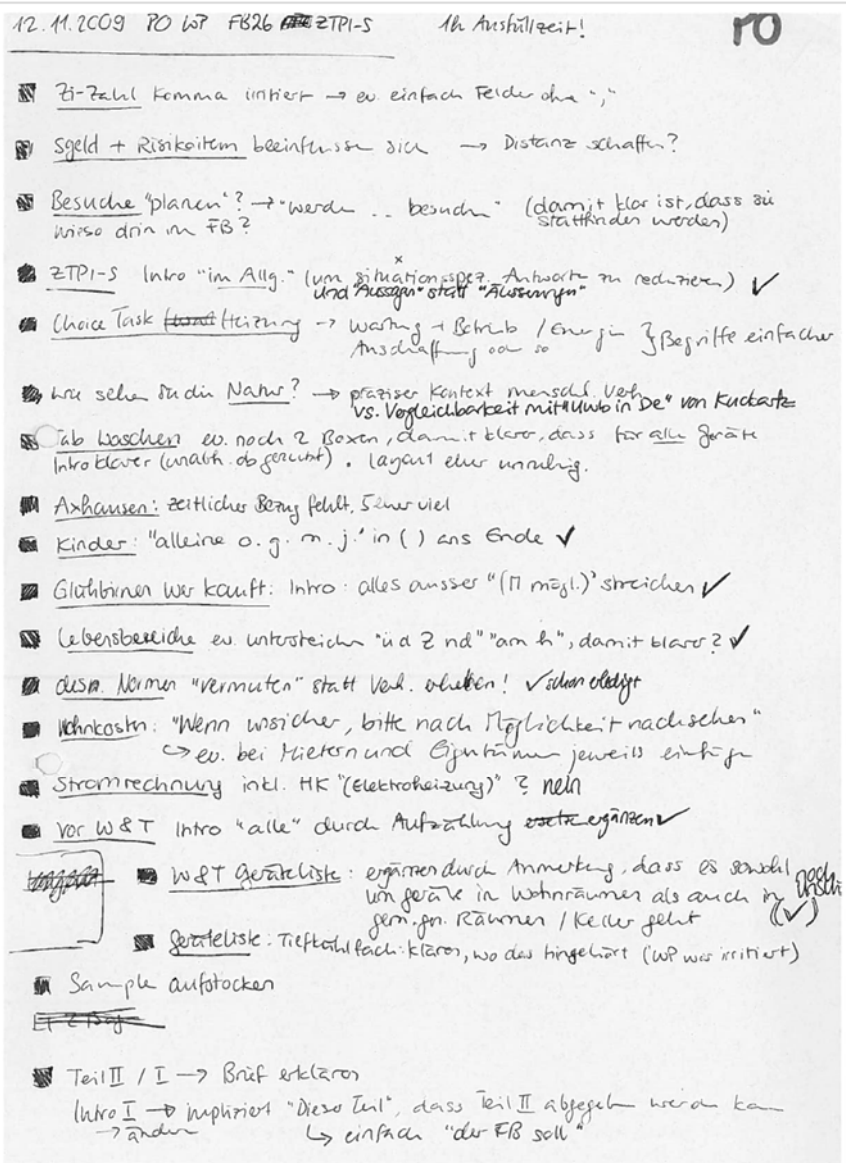 12.11.2009 PO WP FB26 ZTPI-S 1h Ausfüllzeit! PO
Zi-Zahl Komma irritiert → ev. einfach Felder ohne ","
Sgeld + Risikoitem beeinflussen sich → Distanz schaffen?
Besuche "planen"? → "werden .. besuchen" (damit klar ist, dass sie
wieso drin im FB? stattfinden werden)
ZTPI-S Intro "im Allg." (um situationsspez. Antworten zu reduzieren) ✓
und "Aussagen" statt "Äusserungen"
Choice Task Heizung → Wartung + Betrieb / Energie } Begriffe einfacher
Anschaffung oder so
Wie sehen Sie die Natur? → präziser Kontext menschl. Verh.
vs. Vergleichbarkeit mit "Uwb in De" von Kuckartz
Tab Waschen ev. noch 2 Boxen, damit klarer, dass für alle Geräte
Intro klarer (unabh. ob genutzt). Layout eher unruhig.
Axhausen: zeitlicher Bezug fehlt, 5 eher viel
Kinder: "alleine o. g. m. j." in ( ) ans Ende ✓
Glühbirnen wer kauft: Intro: alles ausser "(M mögl.)" streichen ✓
Lebensbereiche ev. unterstreichen "in d Z nd" "am h", damit klarer? ✓
deskr. Normen "vermuten" statt Verh. erheben! ✓ schon erledigt
Wohnkosten: "Wenn unsicher, bitte nach Möglichkeit nachsehen"
↳ ev. bei Mietern und Eigentümern jeweils einfügen
Stromrechnung inkl. HK "(Elektroheizung)"? nein
Vor W&T Intro "alle" durch Aufzählung ergänzen ✓
W&T Geräteliste: ergänzen durch Anmerkung, dass es sowohl noch
um Geräte in Wohnräumen als auch in
gem. gen. Räumen / Keller geht (✓)
Geräteliste: Tiefkühlfach: klären, wo das hingehört (WP war irritiert)
Sample aufstocken
Teil II / I → Brief erklären
Intro I → impliziert "Dieser Teil", dass Teil II abgegeben werden kann
→ ändern ↳ einfach "der FB soll"